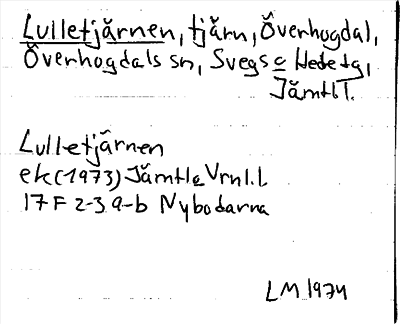 Lulletjärnen, tjärn, Överhogdal,
Överhogdals sn, Svegs o Hede tg,
Jämtl l.
Lulletjärnen
ek (1973) Jämtl o Vrnl.l
17 F 2-3 a-b Nybodarna
LM 1974